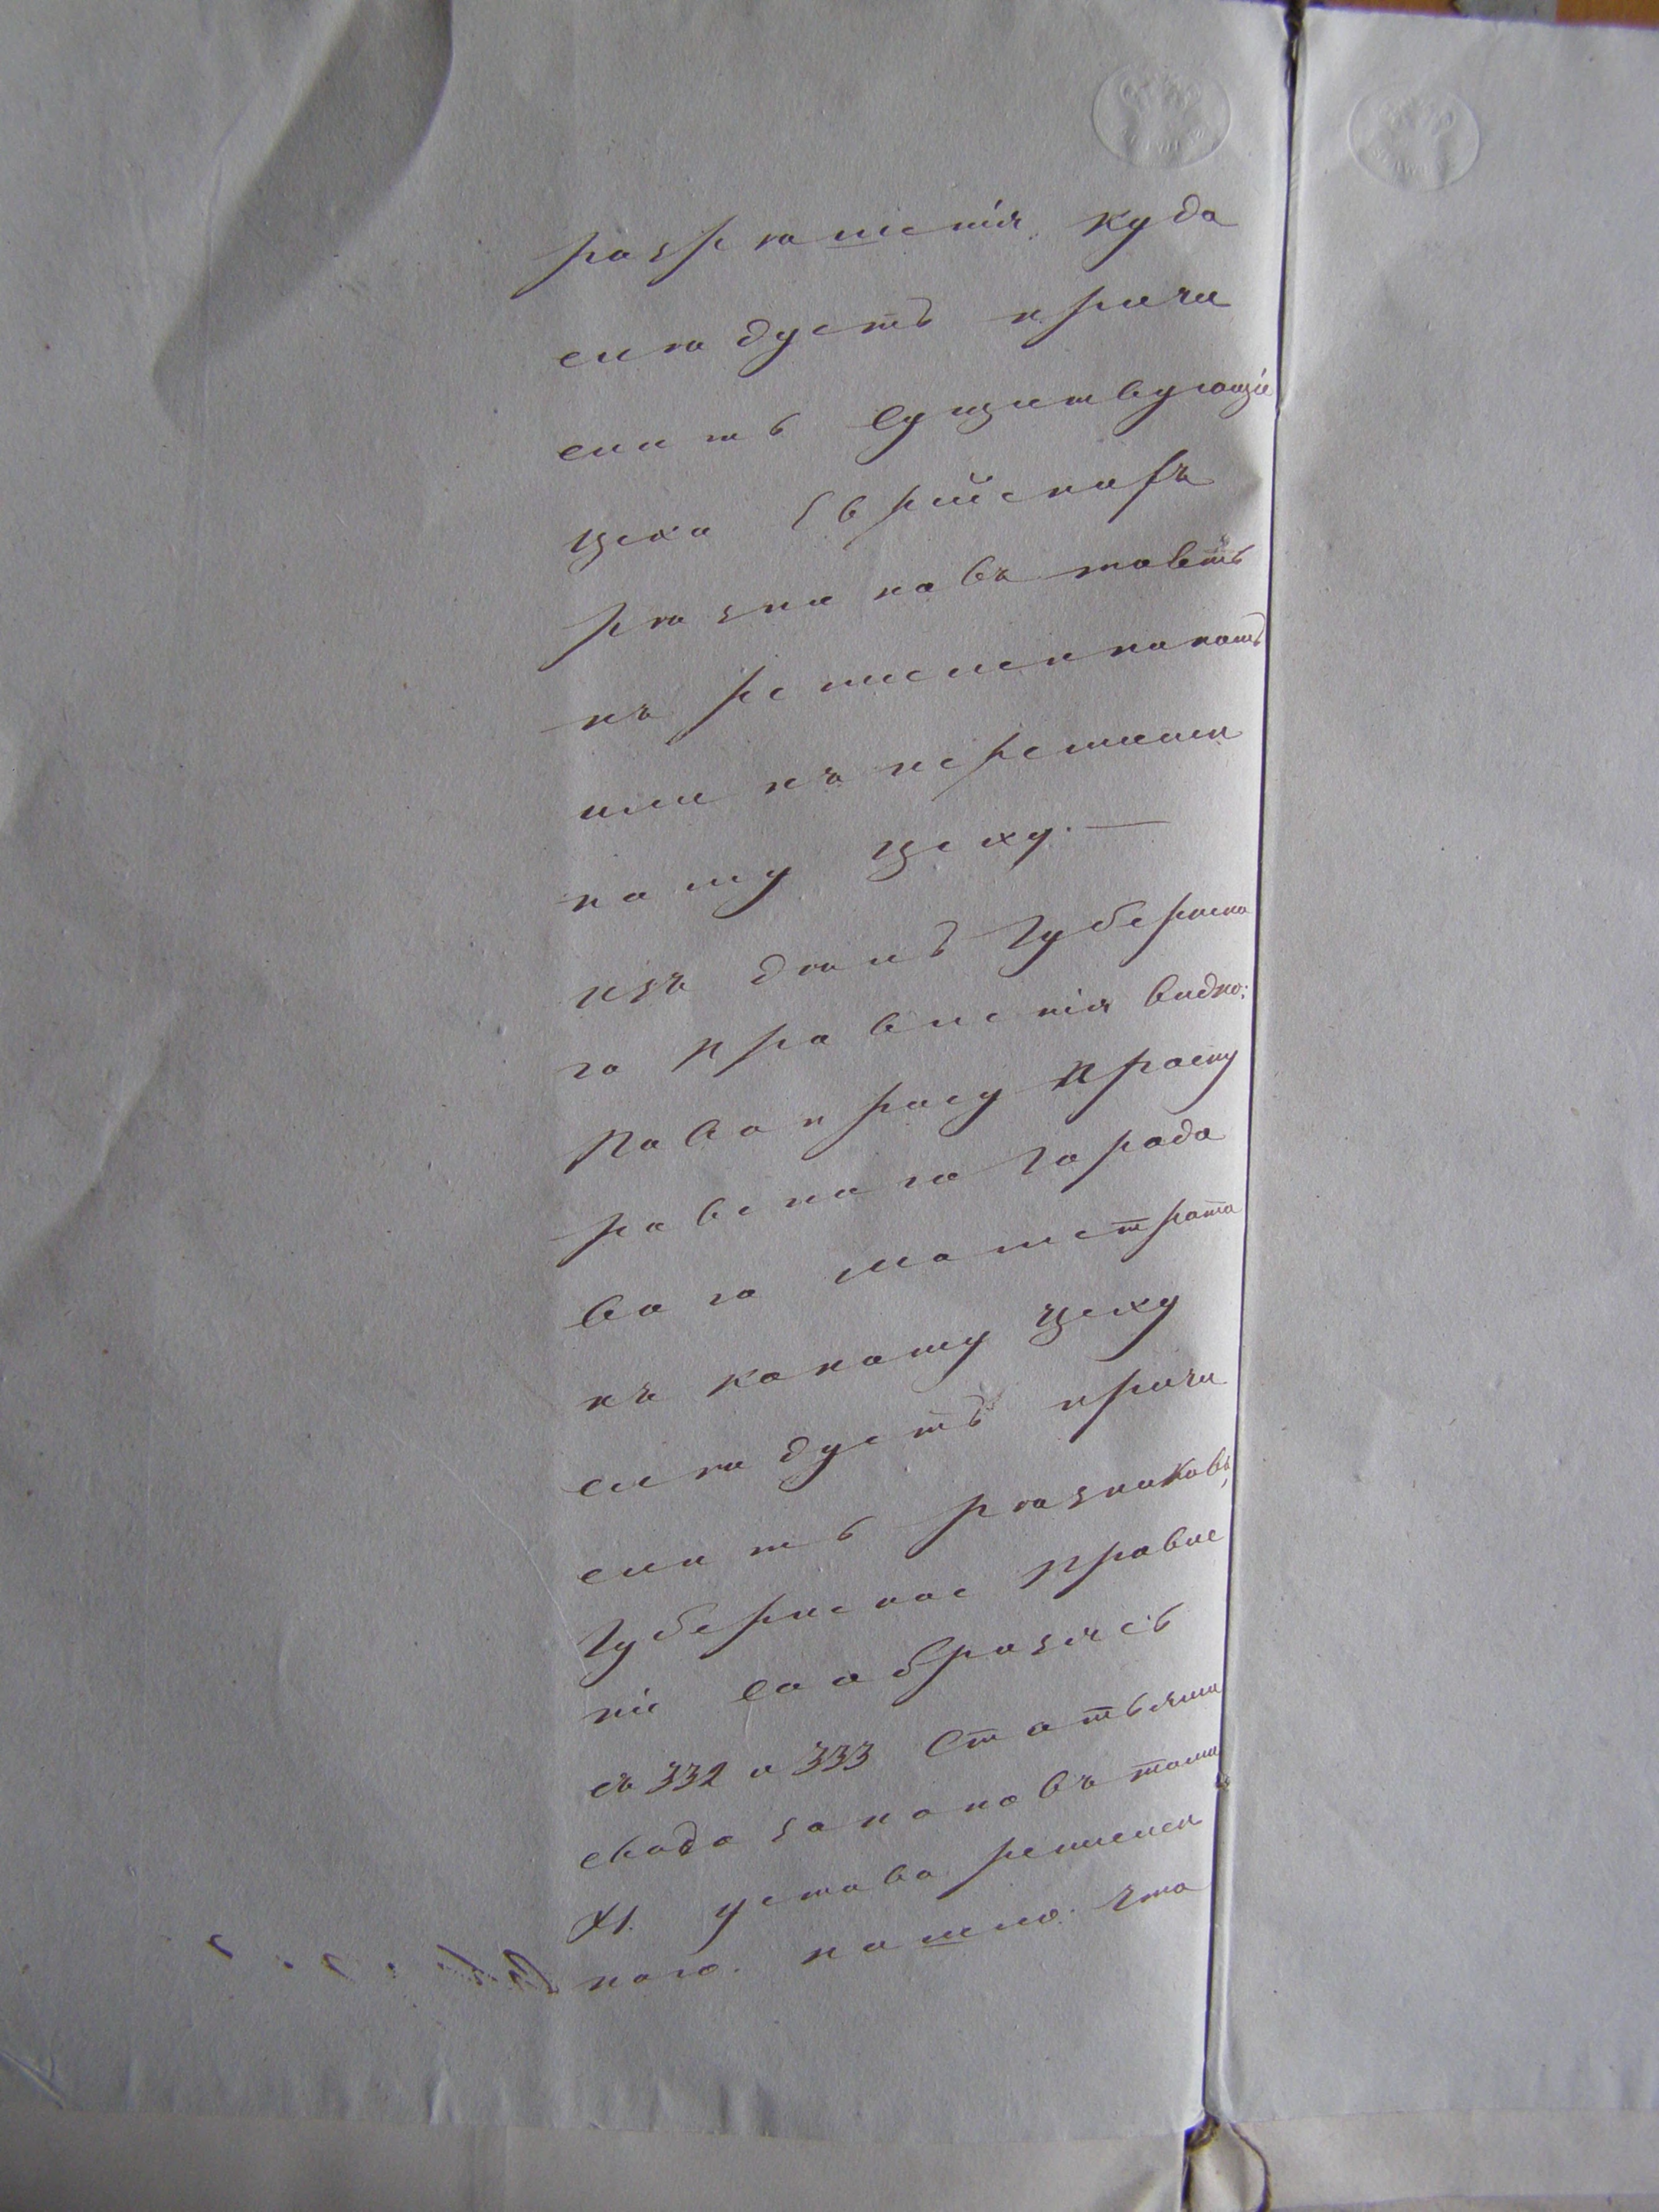 разрѣшенія куда
слѣдуетъ причи
слить Существующіе
цеха Еврейскихъ
рѣзниковъ товѣтъ
къ ремесленномъ
или къ неремеслен
ному цеху. —
изъ дѣлъ Губернска
го правленія видно:
По вопросу Проску
ровскаго Городо
ваго магистрата
къ какому цеху
слѣдуетъ причи
слить рѣзниковъ,
Губернское Правле
ніе Сообразясь
съ 332 и 333 Статьями
свода законовъ тома
XI. устава ремеслен
наго. нашло: что